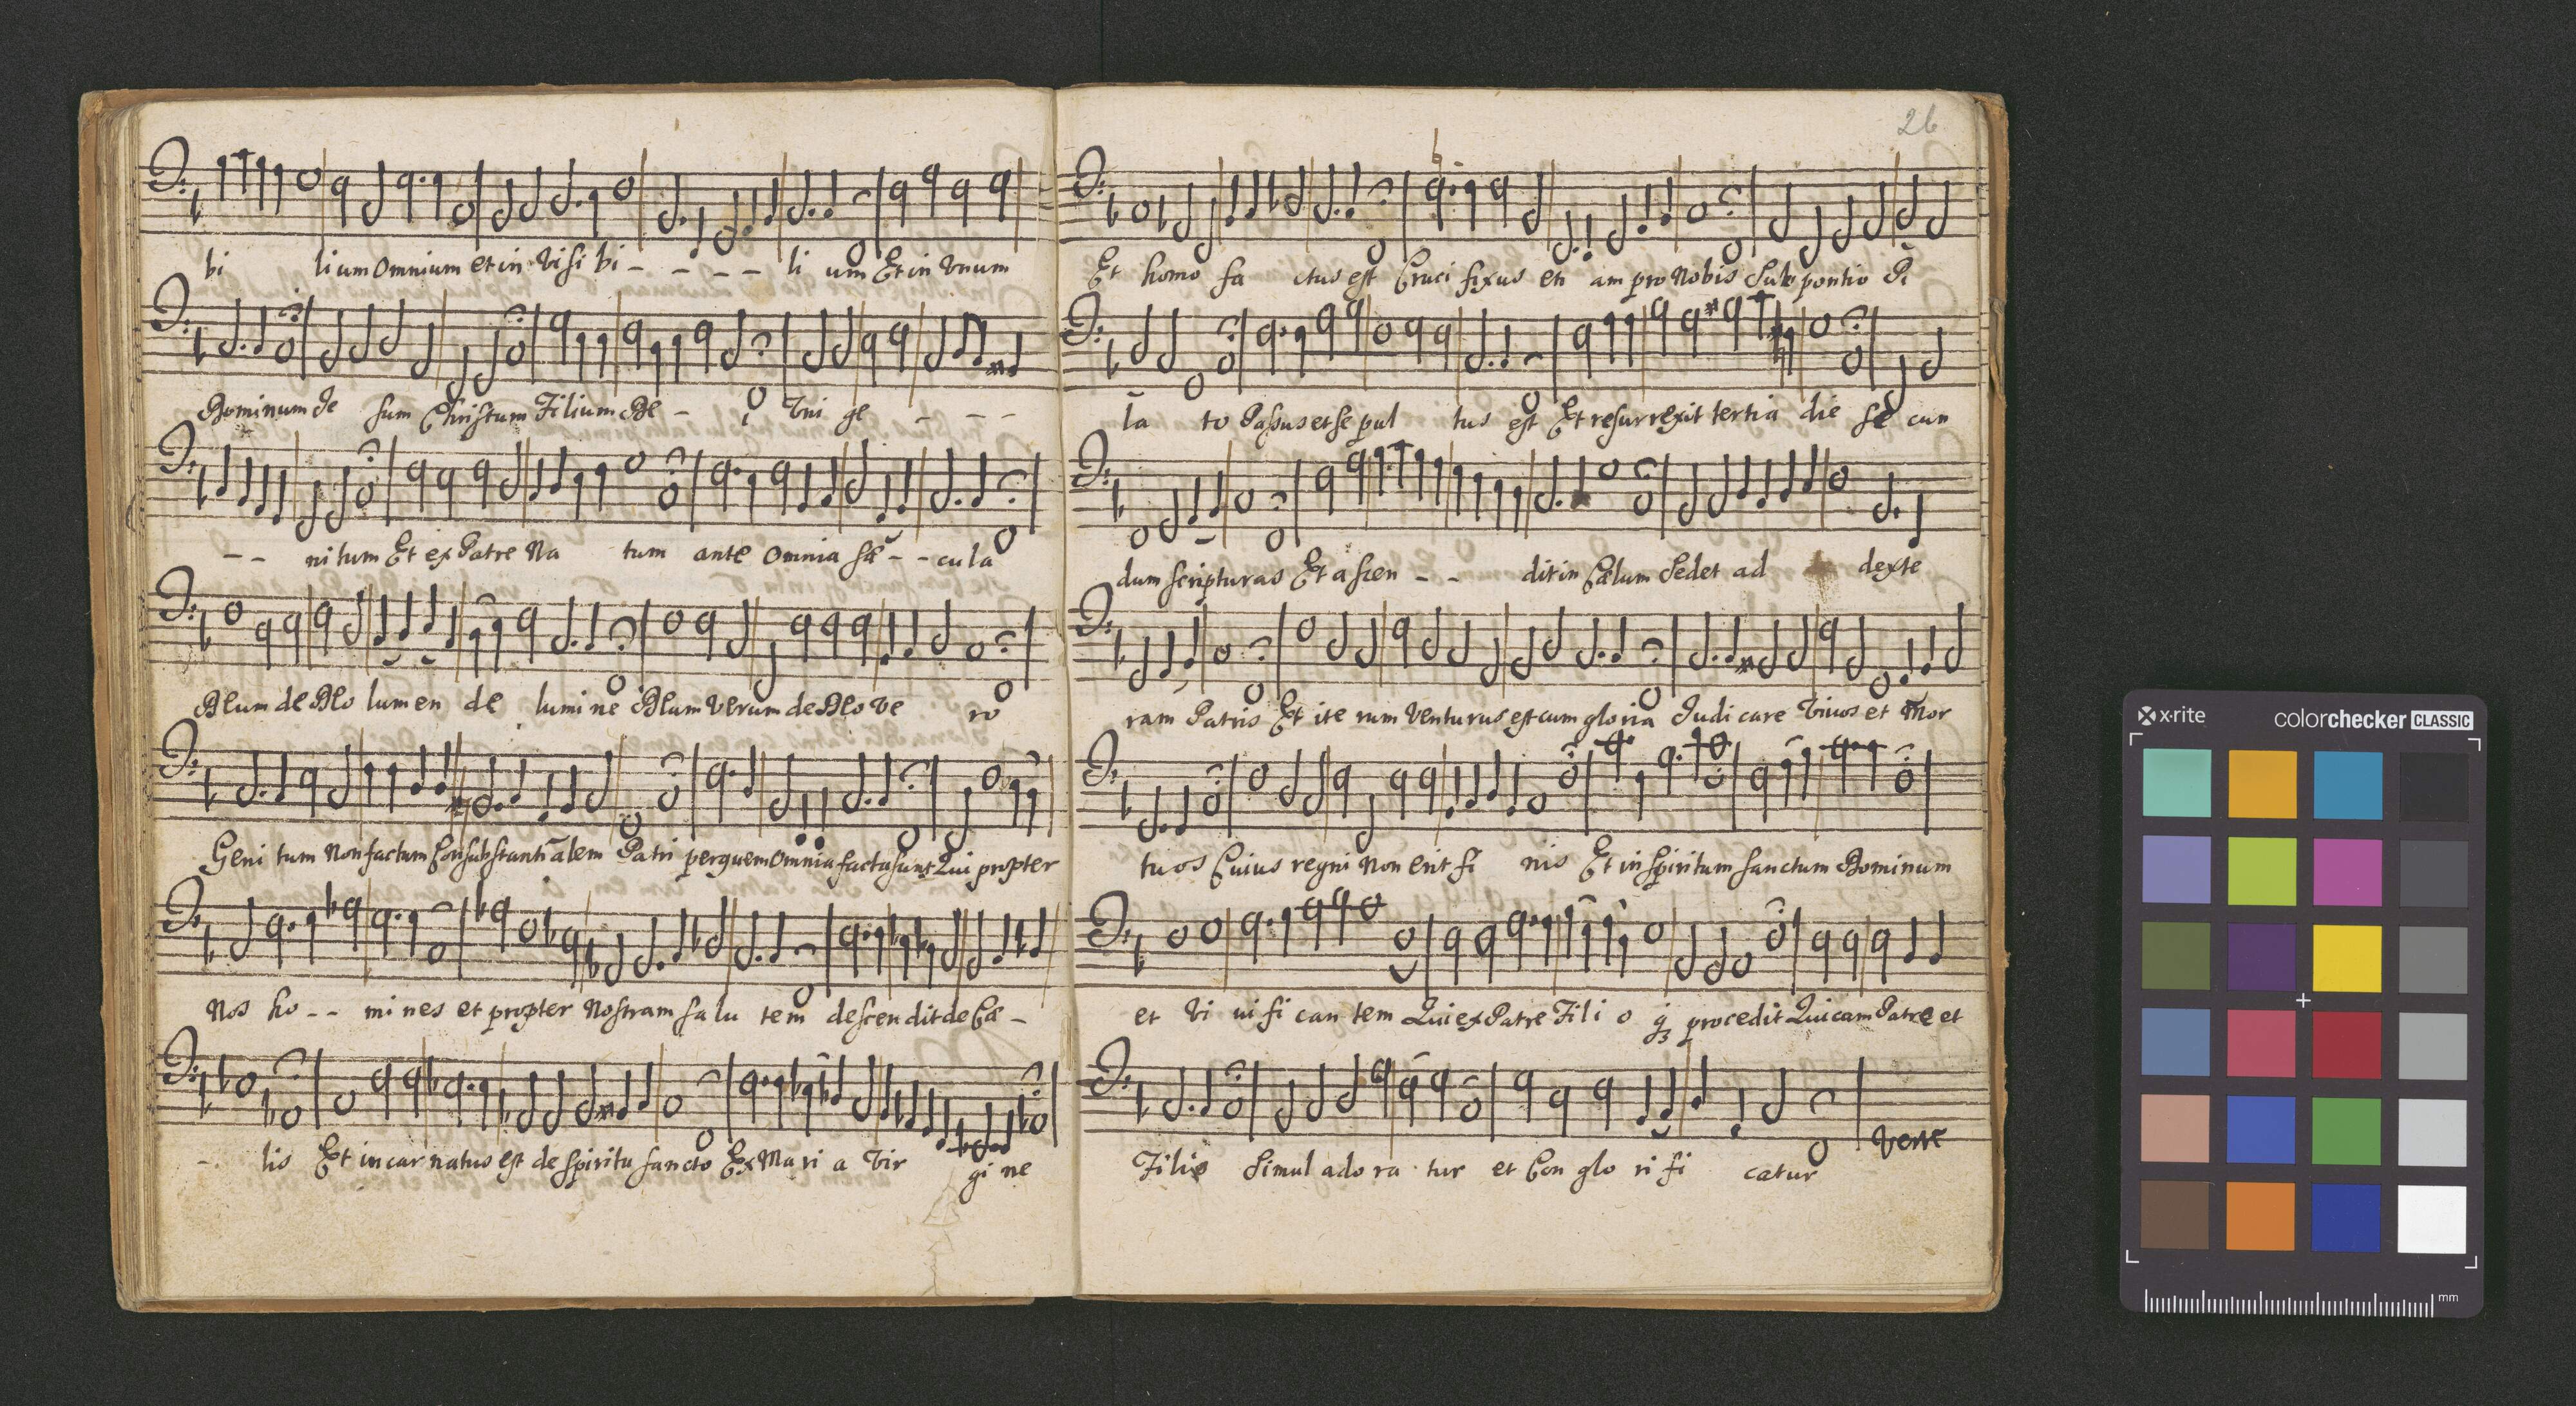 bi lium omnium et in visi bi - - - - li um Et in Vnum
Dominum Je sum Christum Filium De - i Vni ge - - -
- - ni tum Et ex Patre Na tum ante omnia sæ - - cula
Deum de Deo lumen de lumi ne Deum Verum de Deo Ve ro
Geni tum Non factum Consubstanti alem Patri per quem omnia facta sunt Qui propter
Nos ho - - mi nes et propter Nostram sa lu tem descendit de Cæ -
- lis Et incar natus est de spiritu sancto Ex Ma ri a Vir gi ne
26
Et homo fa ctus est Cruci fixus eti am pro Nobis Sub pontio Pi
la to Passus et se pul tus est Et resurrexit tertia die se cun
dum scripturas Et a scen - - dit in Cælum Sedet ad dexte
ram Patris Et ite rum Venturus est cum gloria Judi care Vivos et Mor
tuos Cuius regni Non erit fi nis Et in spiritum sanctum Dominum
et Vi vi fi can tem Qui ex Patre Fili o q3 procedit Qui cam Patre et
Filio Simul ado ra tur et Con glo ri fi catur
Verte
x-rite colorchecker CLASSIC
mm